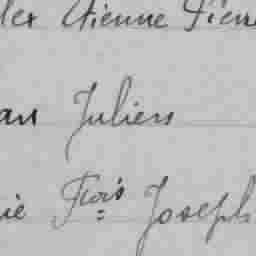 les Etienne Pierre
an Julien
ie Frois Joseph